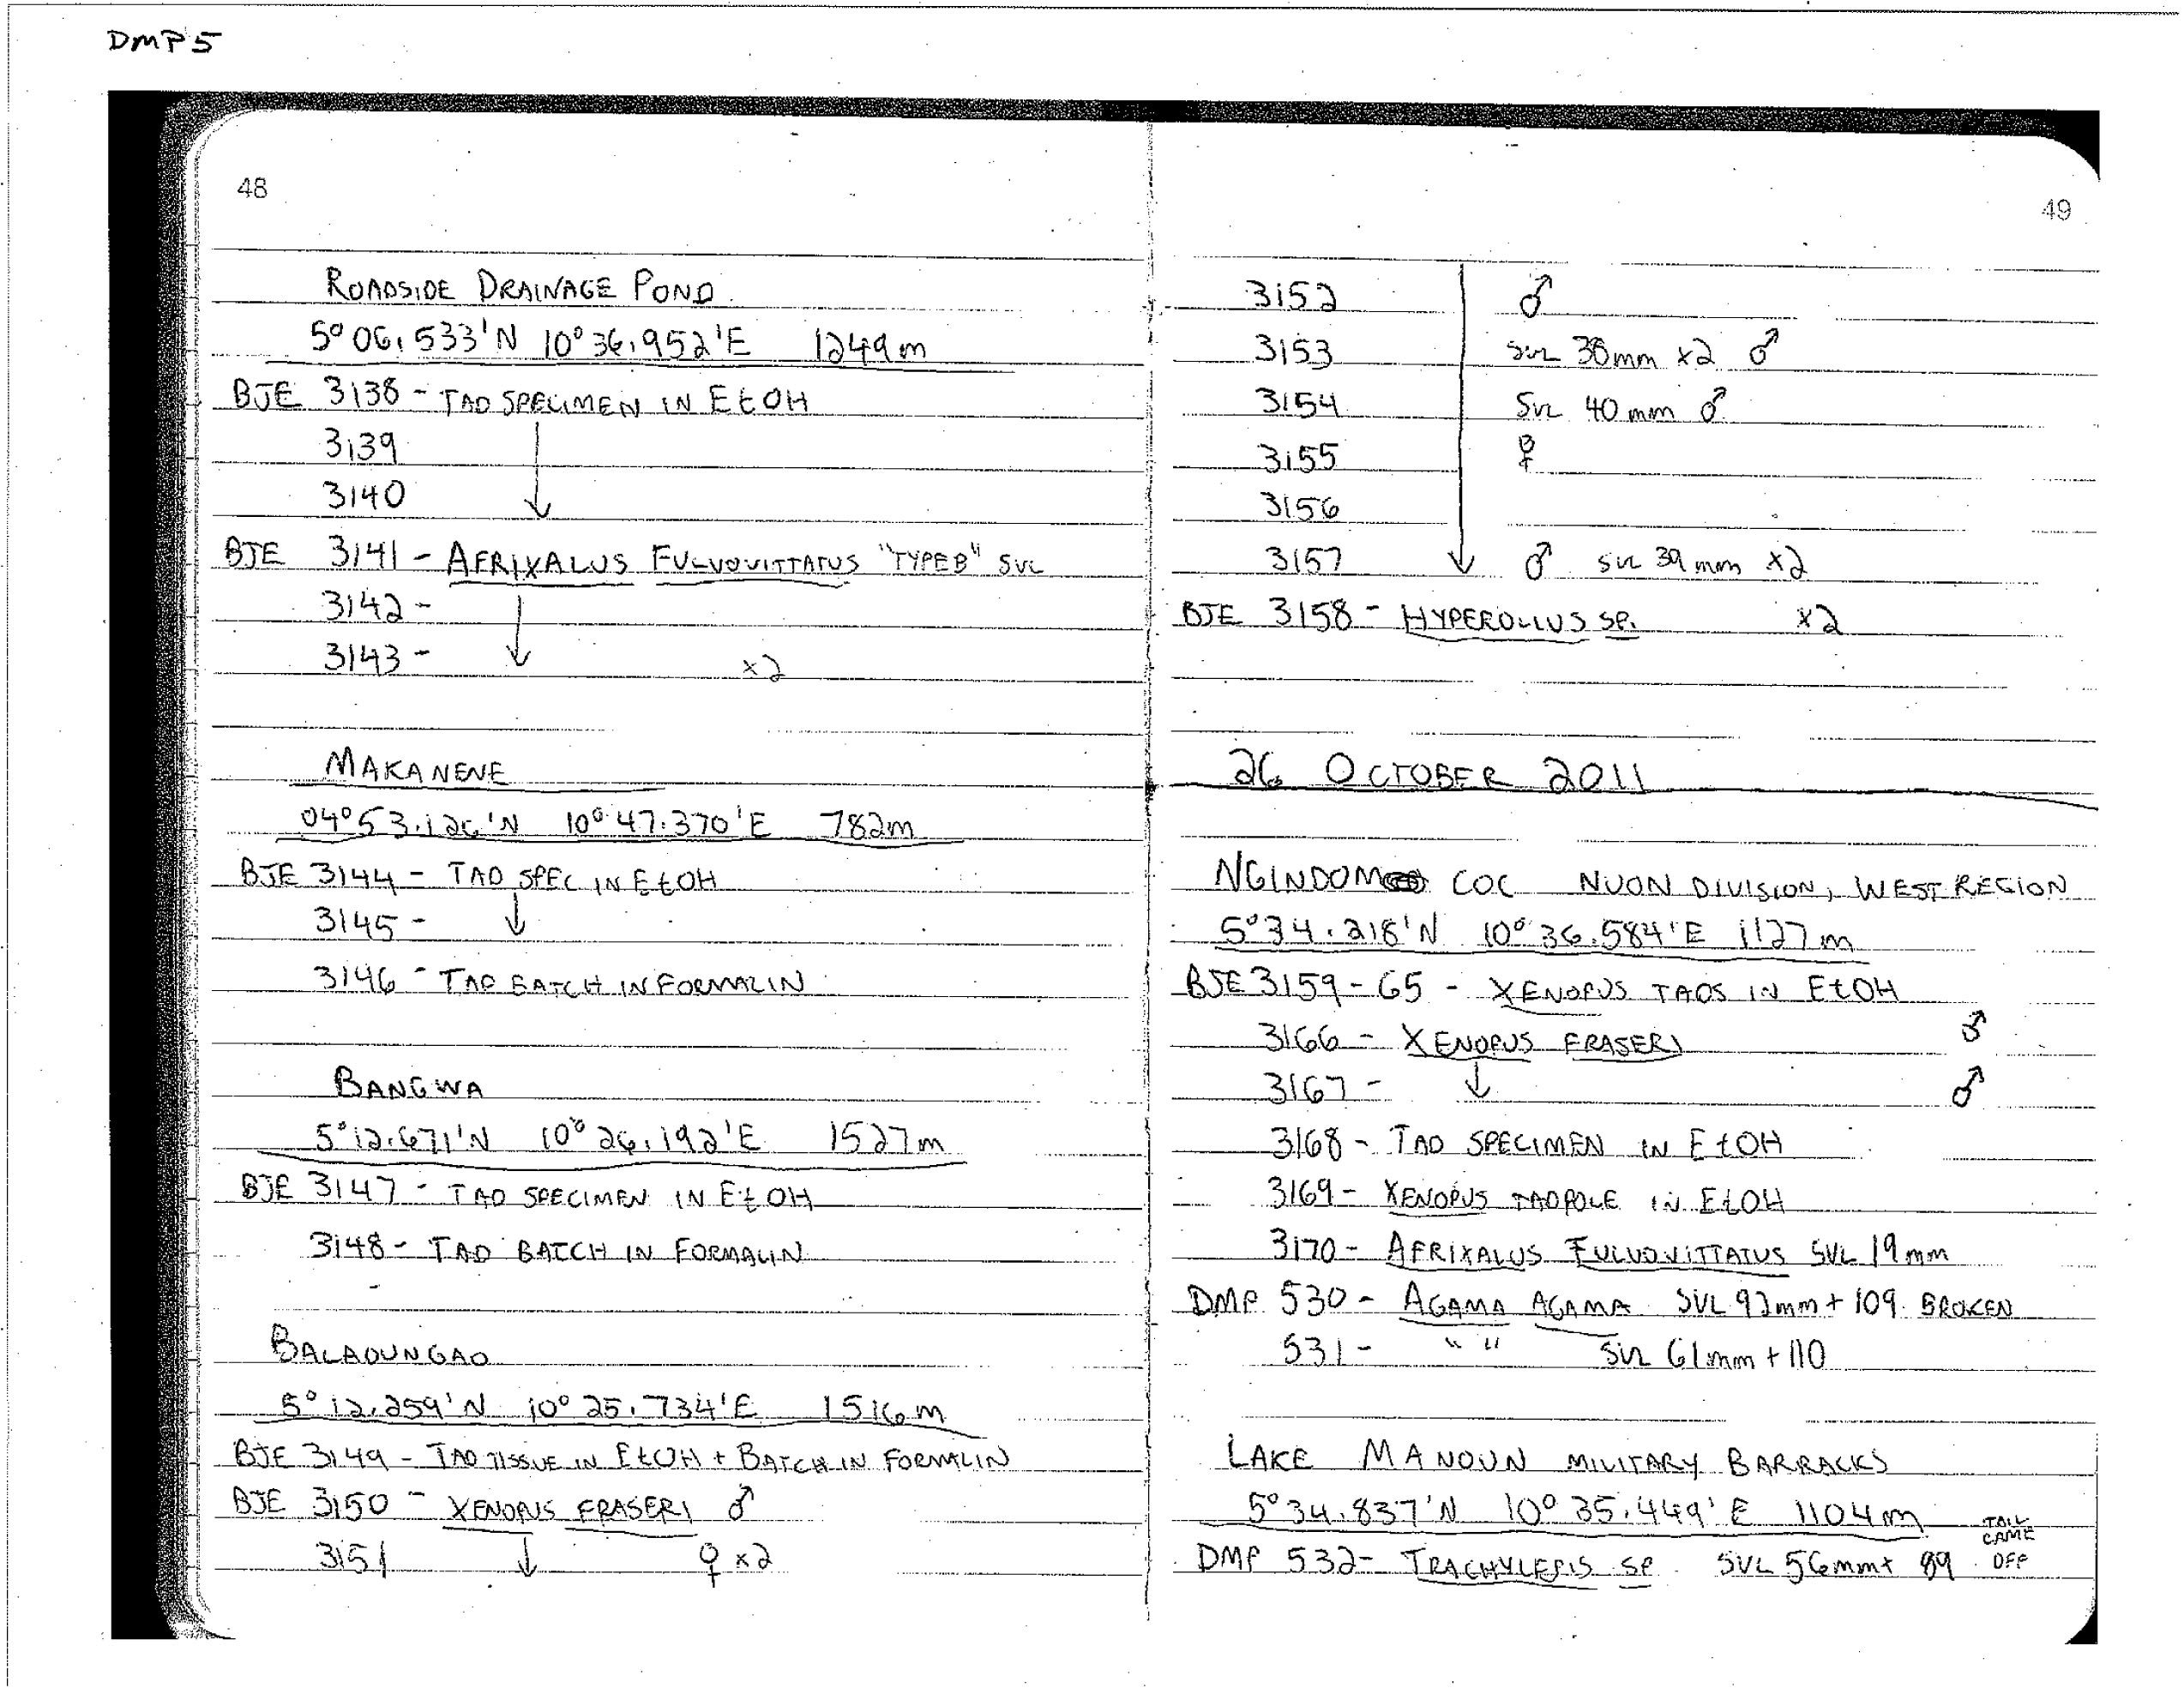 DMP5
48
ROADSIDE DRAINAGE POND
5° 06.533'N 10° 36.952'E 1249m
BJE 3138 - TAD SPECIMEN IN EtOH
3139
3140 ↓
BJE 3141 - AFRIXALUS FULVOVITTATUS "TYPE B" SVL
3142 - ↓
3143 - x2
MAKANENE
04° 53.126'N 10° 47.370'E 782m
BJE 3144 - TAD SPEC IN EtOH
3145 - ↓
3146 - TAD BATCH IN FORMALIN
BANGWA
5° 12.671'N 10° 26.192'E 1527m
BJE 3147 - TAD SPECIMEN IN EtOH
3148 - TAD BATCH IN FORMALIN
BALADUNGAD
5° 12.259'N 10° 25.734'E 1516m
BJE 3149 - TAD TISSUE IN EtOH + BATCH IN FORMALIN
BJE 3150 - XENOPUS FRASERI ♂
3151 ↓ ♀ x2
49
3152 ♂
3153 SVL 38mm x2 ♂
3154 SVL 40mm ♂
3155 ♀
3156
3157 ↓ ♂ SVL 39mm x2
BJE 3158 - HYPEROLIUS SP. x2
26 OCTOBER 2011
NGINDOM COC NUON DIVISION, WEST REGION
5° 34.218'N 10° 36.584'E 1127m
BJE 3159-65 - XENOPUS TADS IN EtOH
3166 - XENOPUS FRASERI ♂
3167 - ↓ ♂
3168 - TAD SPECIMEN IN EtOH
3169 - XENOPUS TADPOLE IN EtOH
3170 - AFRIXALUS FULVOVITTATUS SVL 19mm
DMP 530 - AGAMA AGAMA SVL 92mm + 109 BROKEN
531 - " " SVL 61mm + 110
LAKE MANOUN MILITARY BARRACKS
5° 34.837'N 10° 35.449'E 1104m
DMP 532 - TRACHYLEPIS SP. SVL 56mm + 89 TAIL CAME OFF